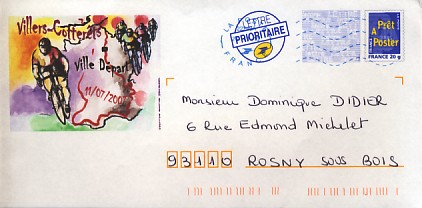 Villers-Cotterêts
Ville Départ
11/07/200
LA LETTRE
PRIORITAIRE
FRANCE
Prêt
A
Poster
FRANCE 20 g
Monsieur Dominique DIDIER
6 Rue Edmond Michelet
93110 ROSNY SOUS BOIS